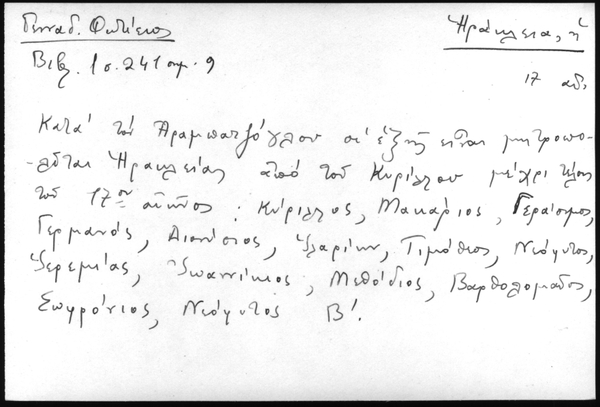 Γενναδ. Φωτίειος
Ἡράκλεια, ἡ
Βιβλ. 1 σ. 241 σημ. 9
17 αἰ.
Κατά τόν Ἀραμπατζόγλου οἱ ἑξῆς εἶναι μητροπο-
-λῖται Ἡρακλείας ἀπό τοῦ Κυρίλλου μέχρι τέλος
τοῦ 17ου αἰῶνος : Κύριλλος, Μακάριος, Γεράσιμος,
Γερμανός, Διονύσιος, Ἱλαρίων, Τιμόθεος, Νεόφυτος,
Ἱερεμίας, Ἰωαννίκιος, Μεθόδιος, Βαρθολομαῖος,
Σωφρόνιος, Νεόφυτος Β'.